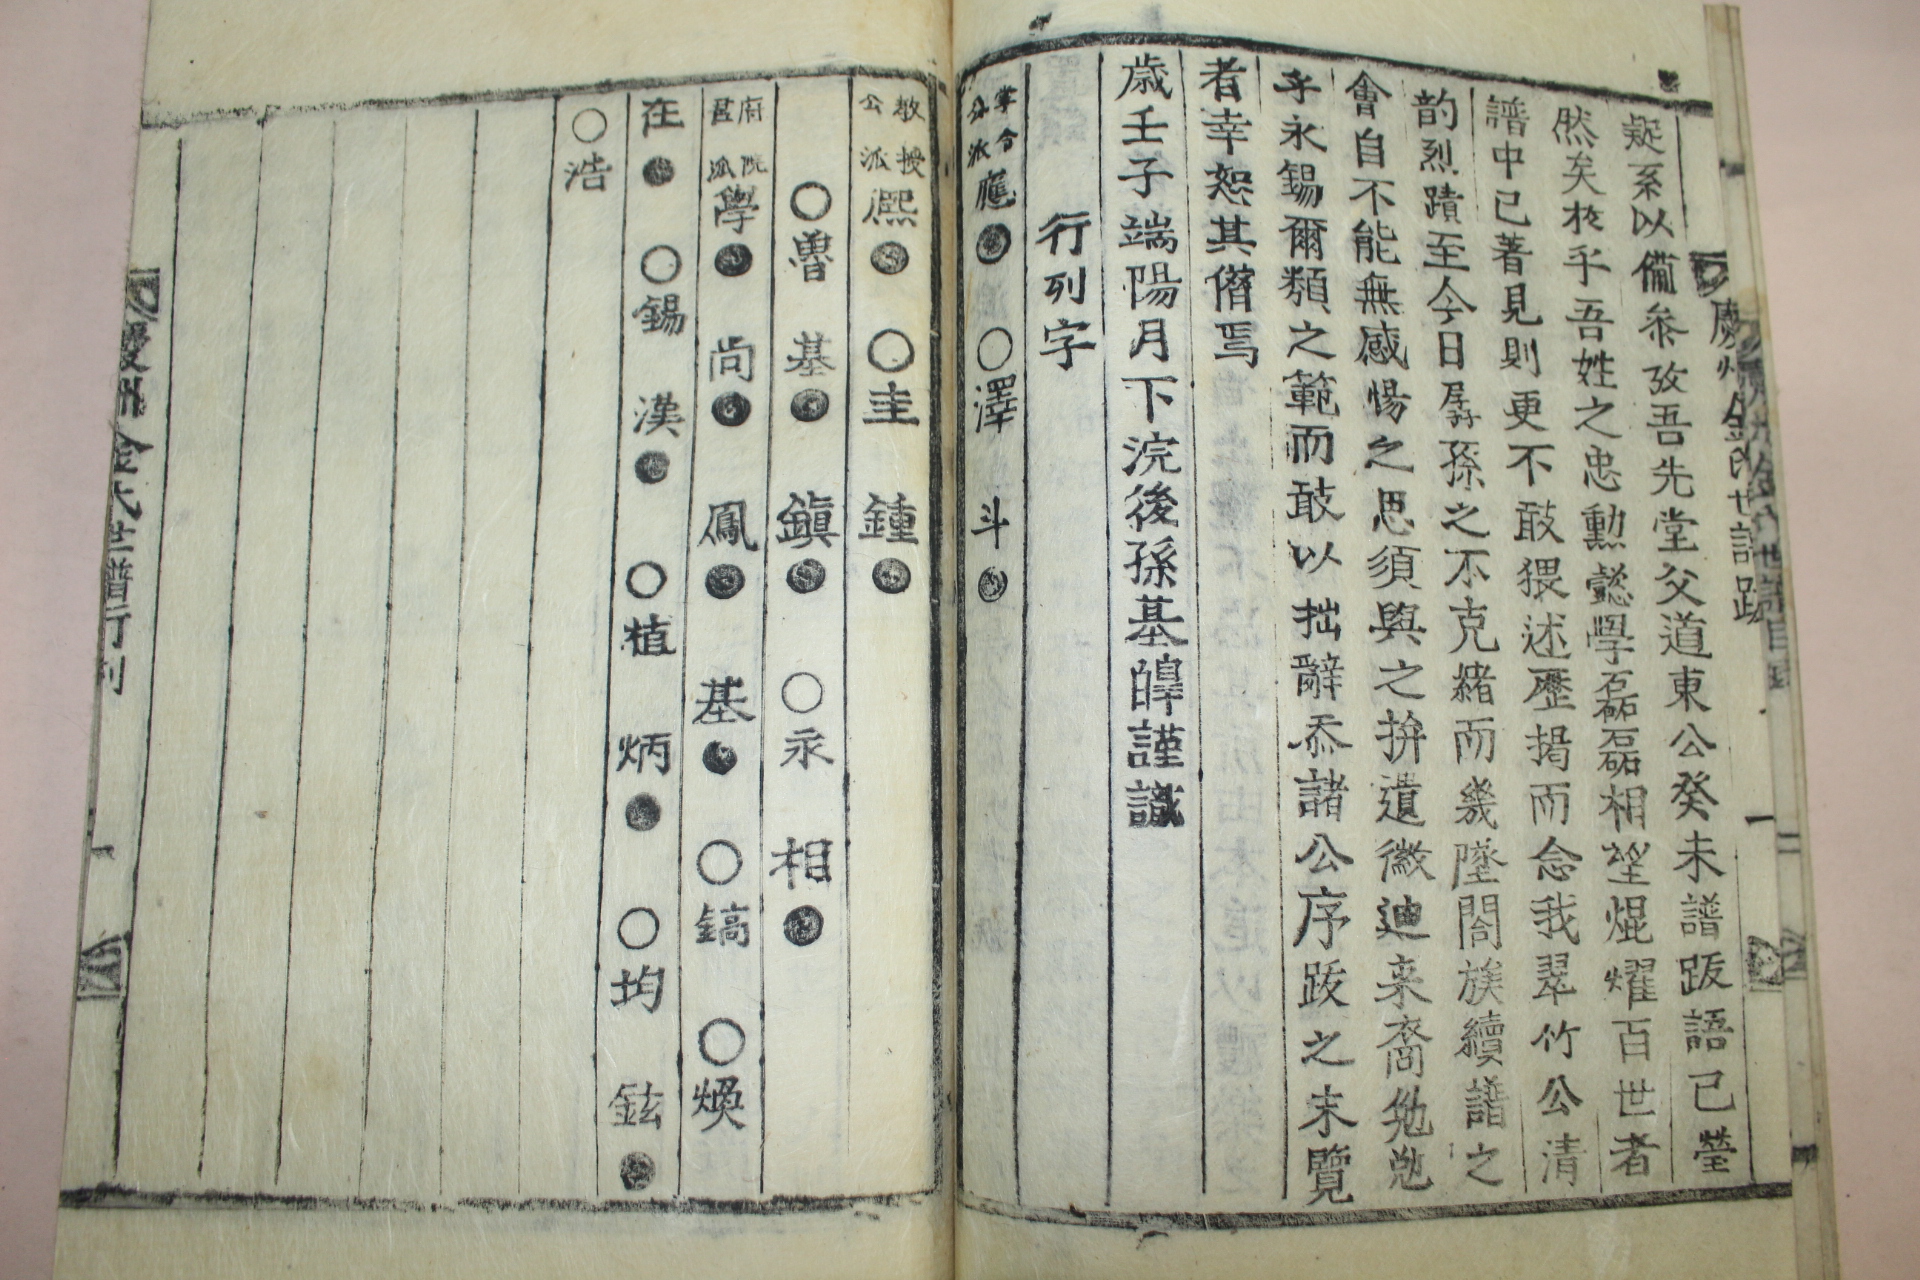 慶州金氏世譜跋 一
疑系以備叅攷吾先堂父道東公癸未譜跋語已瑩
然矣於乎吾姓之忠勳懿學磊磊相望焜耀百世者
譜中已著見則更不敢猥述歷揭而念我翠竹公清
韵烈蹟至今日孱孫之不克緒而幾墜閤族續譜之
會自不能無感愓之思須與之拚遺徽迪来裔勉勉
乎永錫爾類之範而敢以拙辭忝諸公序跋之末覽
者幸恕其僭焉
歲壬子端陽月下浣後孫基皥謹識
行列字
掌令公派應● ○澤 斗●
教授公派熙● ○圭 鍾●
○魯 基● 鎭● ○永 相●
府院君派學● 尚● 鳳● 基● ○鎬 ○煥
在● ○錫 漢● ○植 炳● ○均 鉉●
○浩
慶州金氏世譜行列 一